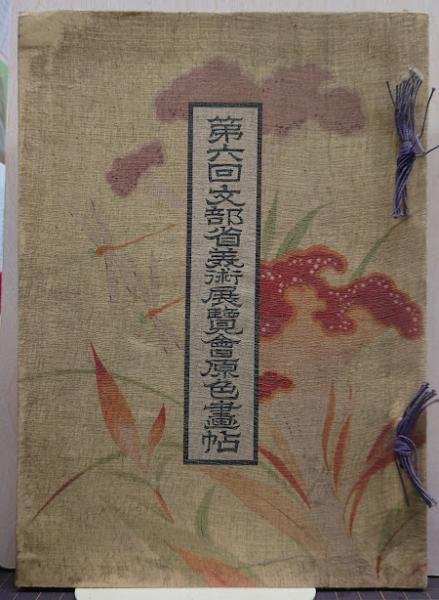 第六回文部省美術展覽會原色畫帖